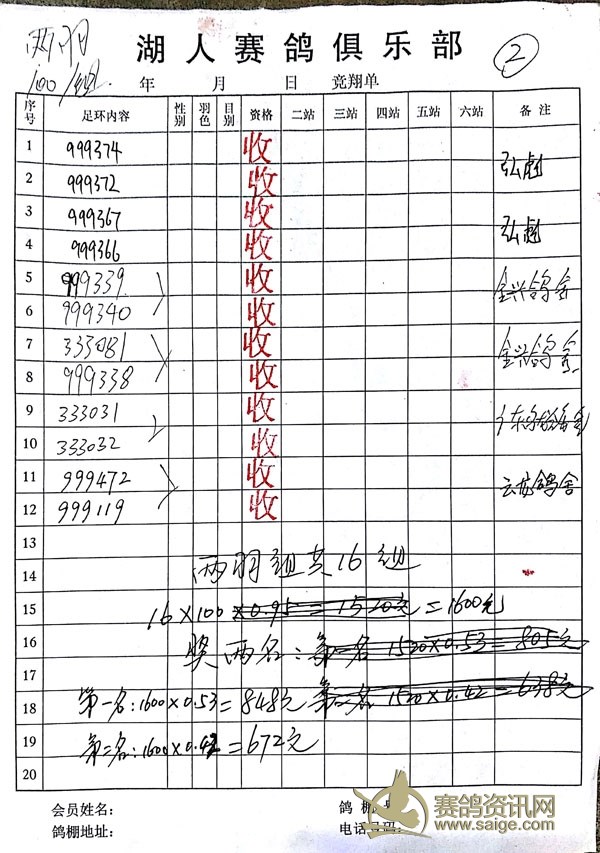 两羽
100/组
湖人赛鸽俱乐部
②
年 月 日 竞翔单
序号 足环内容 性别 羽色 目别 资格 二站 三站 四站 五站 六站 备注
1 999374 收
2 999372 收 弘彪
3 999367 收
4 999366 收 弘彪
5 999339 收 金兴鸽舍
6 999340 收
7 333081 收 金兴鸽舍
8 999338 收
9 333031 收
10 333032 收
11 999472 收 云龙鸽舍
12 999119 收
13
14 两羽组共16组
15 16×100×0.95=1520元=1600元
16 奖两名:第一名 1520×0.53=805元
17
18 第一名:1600×0.53=848元 第二名 1520×0.42=638元
19 第二名:1600×0.42=672元
20
会员姓名: 鸽棚号
鸽棚地址: 电话号码:
赛鸽资讯网
www.saige.com